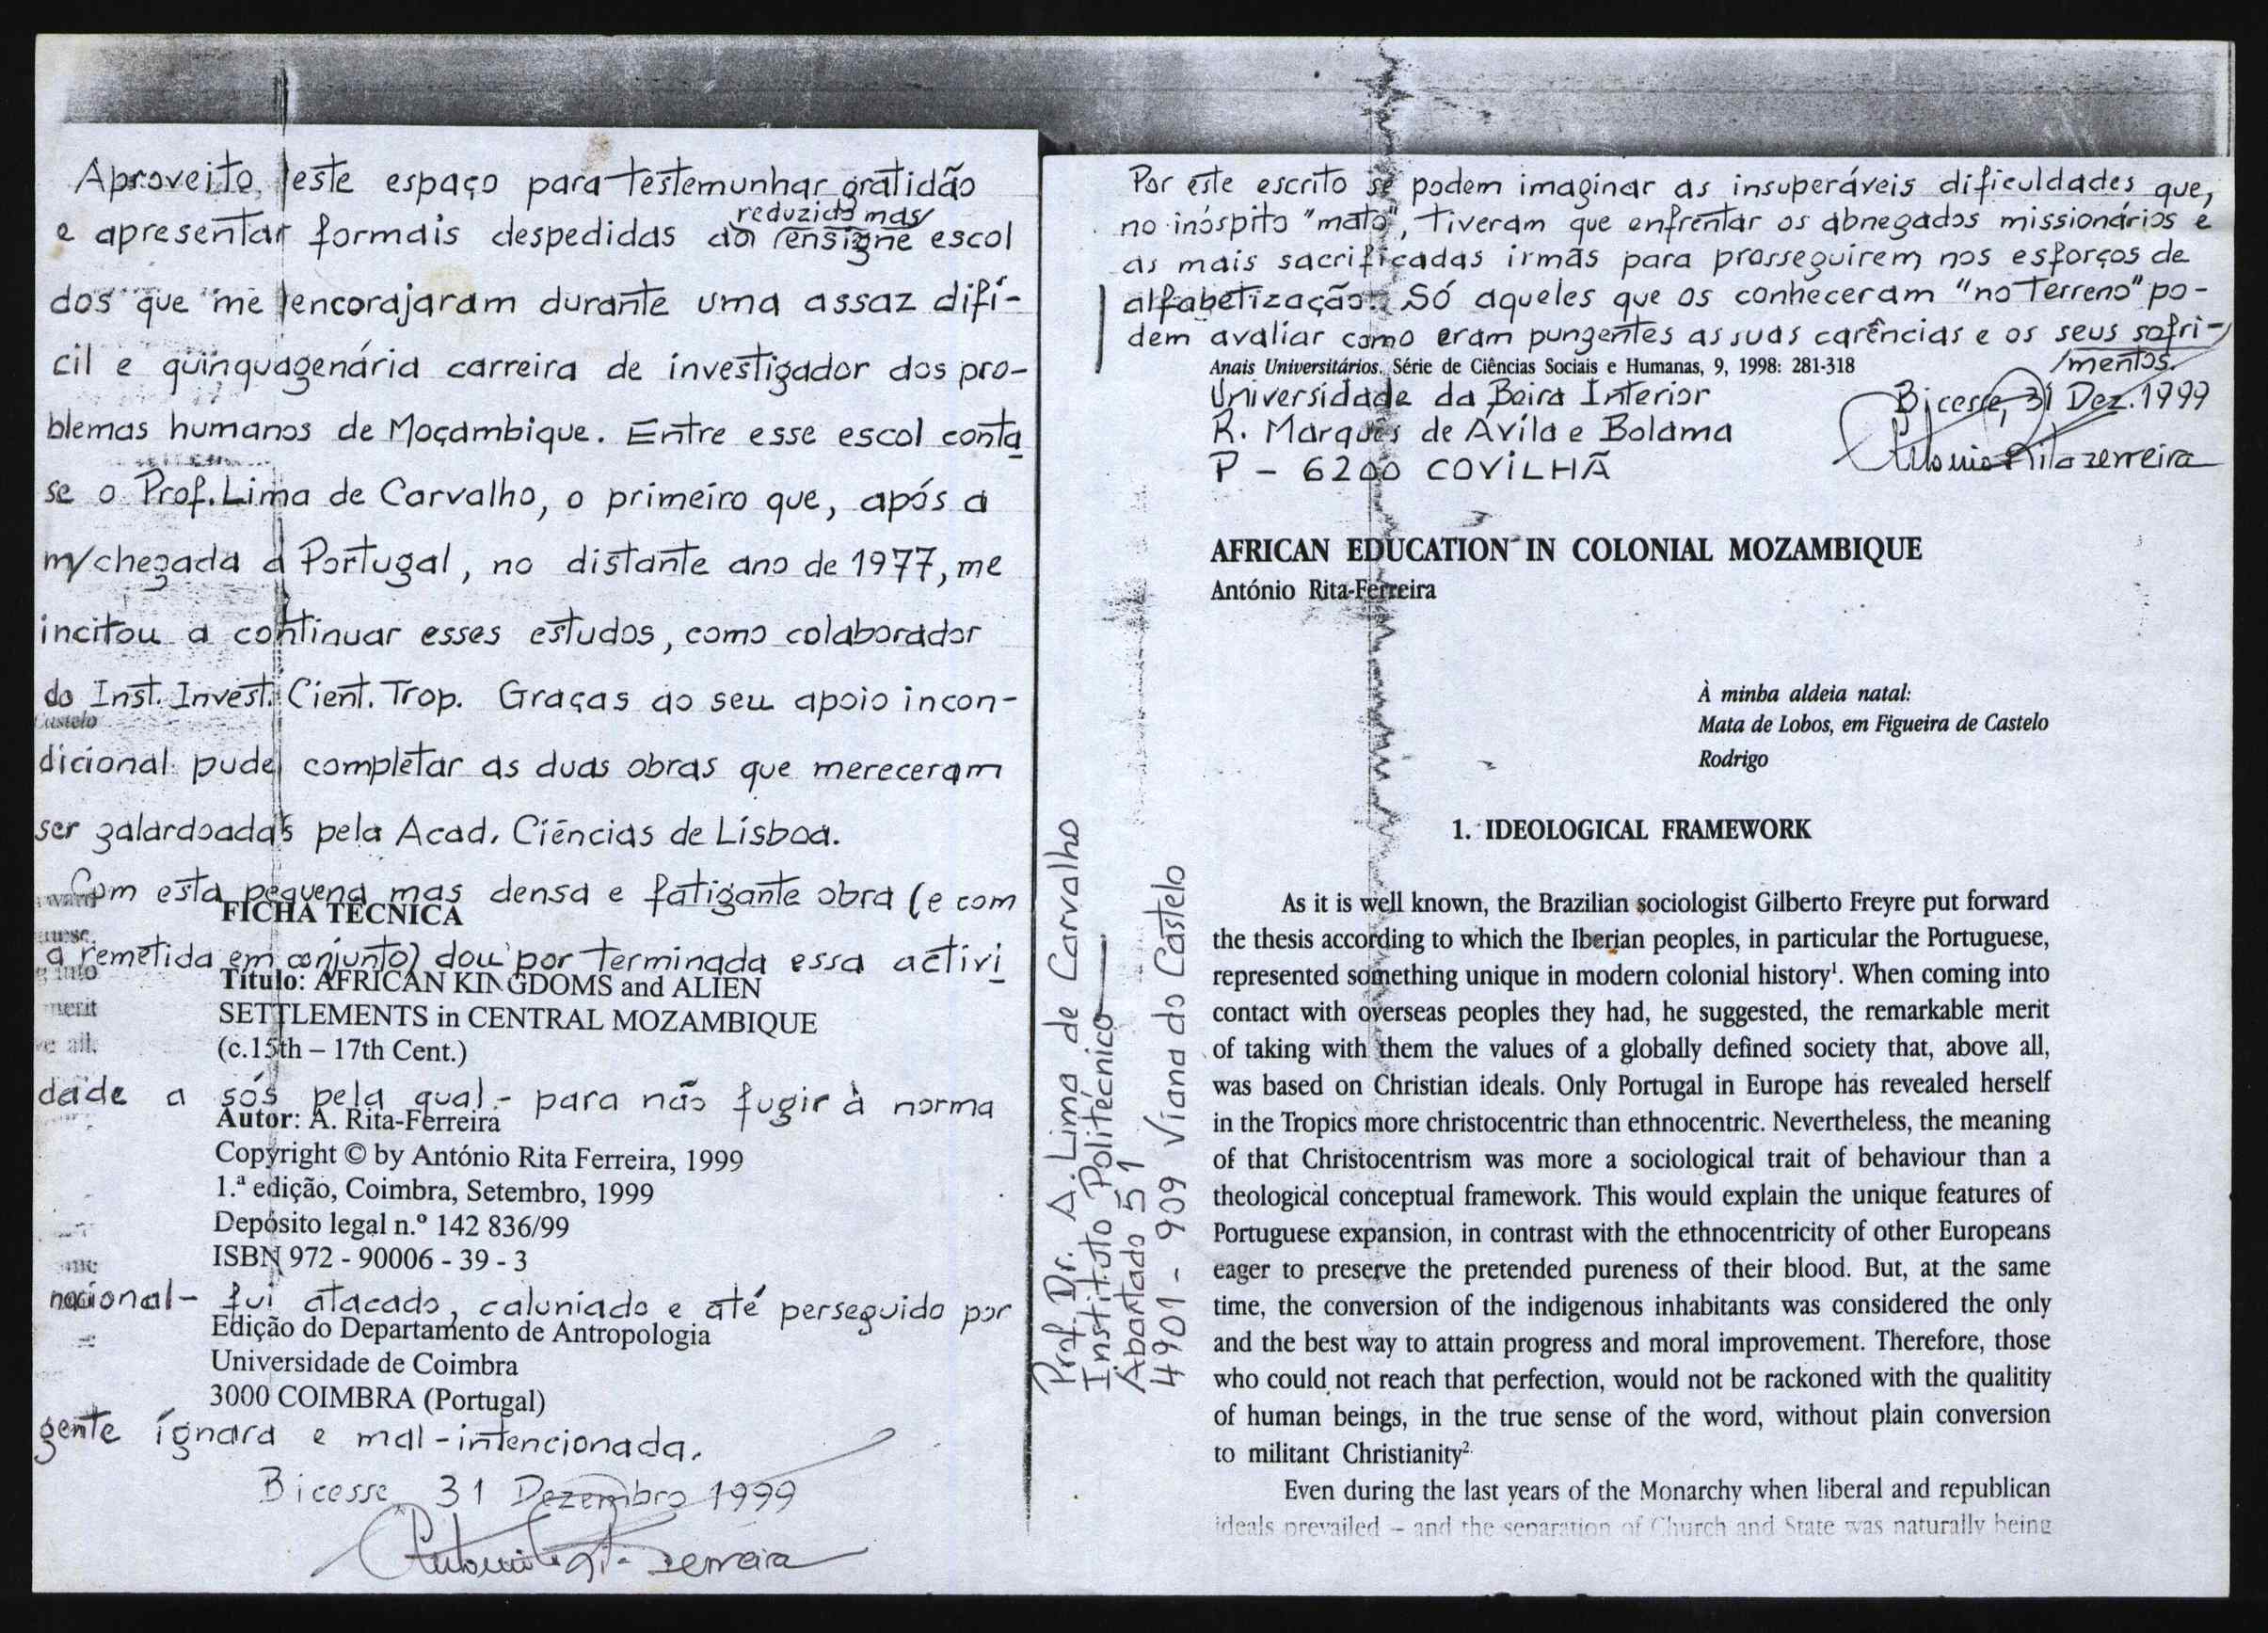 Aproveito este espaço para testemunhar gratidão
reduzido mas
e apresentar formais despedidas ao ensigne escol
dos que me encorajaram durante uma assaz difí-
cil e qüinquagenária carreira de investigador dos pro-
blemas humanos de Moçambique. Entre esse escol conta
se o Prof. Lima de Carvalho, o primeiro que, após a
m/chegada a Portugal, no distante ano de 1977, me
incitou a continuar esses estudos, como colaborador
do Inst. Invest. Cient. Trop. Graças ao seu apoio incon-
Castelo
dicional pude completar as duas obras que mereceram
ser galardoadas pela Acad. Ciências de Lisboa.
Com esta pequena mas densa e fatigante obra (e com
FICHA TÉCNICA
a remetida em conjunto) dou por terminada essa activi
Título: AFRICAN KINGDOMS and ALIEN
merit
SETTLEMENTS in CENTRAL MOZAMBIQUE
(c.15th – 17th Cent.)
dade a sós pela qual - para não fugir à norma
Autor: A. Rita-Ferreira
Copyright © by António Rita Ferreira, 1999
1.ª edição, Coimbra, Setembro, 1999
Depósito legal n.º 142 836/99
ISBN 972 - 90006 - 39 - 3
nacional - fui atacado, caluniado e até perseguido por
Edição do Departamento de Antropologia
Universidade de Coimbra
3000 COIMBRA (Portugal)
gente ignara e mal-intencionada.
Bicesse, 31 Dezembro 1999
António Rita-Ferreira
Prof. Dr. A. Lima de Carvalho
Instituto Politécnico
Abartado 51
4901 - 909 Viana do Castelo
Por este escrito se podem imaginar as insuperáveis dificuldades que,
no inóspito "mato", tiveram que enfrentar os abnegados missionários e
as mais sacrificadas irmãs para prosseguirem nos esforços de
alfabetização. Só aqueles que os conheceram "no terreno" po-
dem avaliar como eram pungentes as suas carências e os seus sofri-
/mentos.
Anais Universitários. Série de Ciências Sociais e Humanas, 9, 1998: 281-318
Universidade da Beira Interior
Bicesse, 31 Dez. 1999
R. Marquês de Ávila e Bolama
António Rita Ferreira
P - 6200 COVILHÃ
AFRICAN EDUCATION IN COLONIAL MOZAMBIQUE
António Rita-Ferreira
À minha aldeia natal:
Mata de Lobos, em Figueira de Castelo
Rodrigo
1. IDEOLOGICAL FRAMEWORK
As it is well known, the Brazilian sociologist Gilberto Freyre put forward
the thesis according to which the Iberian peoples, in particular the Portuguese,
represented something unique in modern colonial history¹. When coming into
contact with overseas peoples they had, he suggested, the remarkable merit
of taking with them the values of a globally defined society that, above all,
was based on Christian ideals. Only Portugal in Europe has revealed herself
in the Tropics more christocentric than ethnocentric. Nevertheless, the meaning
of that Christocentrism was more a sociological trait of behaviour than a
theological conceptual framework. This would explain the unique features of
Portuguese expansion, in contrast with the ethnocentricity of other Europeans
eager to preserve the pretended pureness of their blood. But, at the same
time, the conversion of the indigenous inhabitants was considered the only
and the best way to attain progress and moral improvement. Therefore, those
who could not reach that perfection, would not be rackoned with the qualitity
of human beings, in the true sense of the word, without plain conversion
to militant Christianity²
Even during the last years of the Monarchy when liberal and republican
ideals prevailed – and the separation of Church and State was naturally being